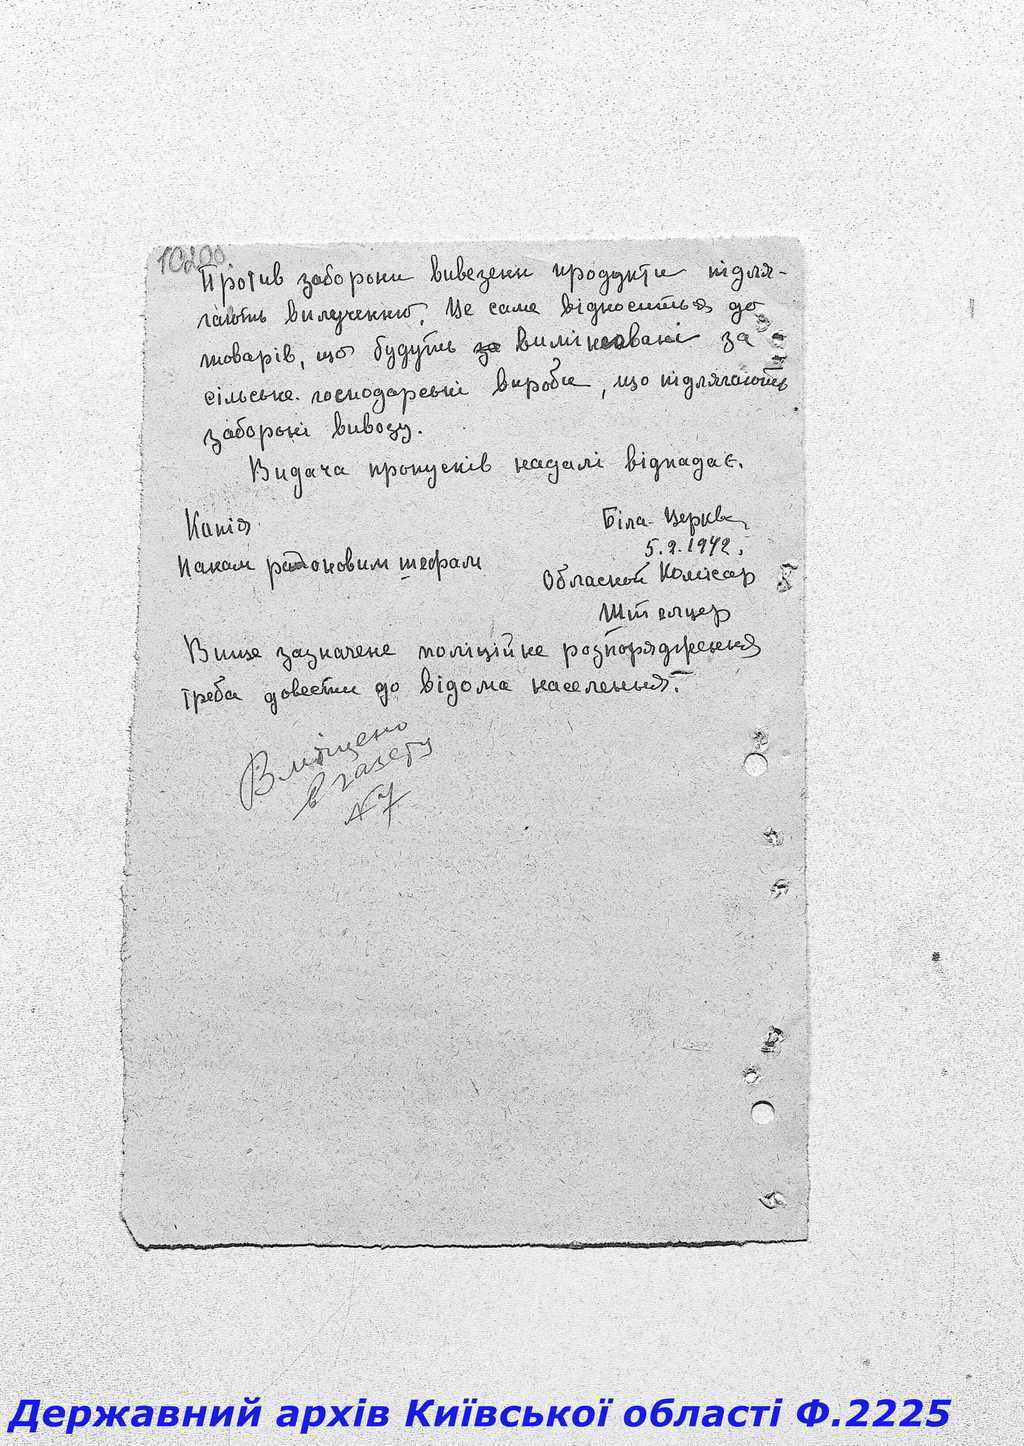 Против заборони вивезени продукти підля-
гають вилученню. Це саме відноситься до
товарів, що будуть за виміновані за
сільсько-господарські вироби, що підлягають
забороні вивозу.
Видача пропусків надалі відпадає.
Копія
Панам районовим шефам
Біла-Церква
5.2.1942.
Обласний Комісар
Штельцер
Више зазначене поліційне розпорядження
треба довести до відома населення.
Вміщено
в газету
№7
Державний архів Київської області Ф.2225